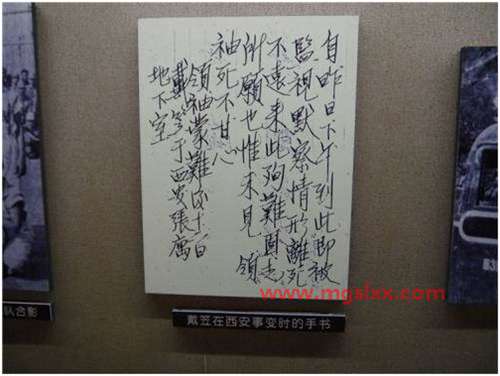 自昨日下午到此即被
監視默察情形離死
不遠來此殉難固志
所願也惟未見 領
袖死不甘心
領袖蒙難後十一日
戴笠于西安張寓
地下室
www.mgslxx.com
队合影
戴笠在西安事变时的手书